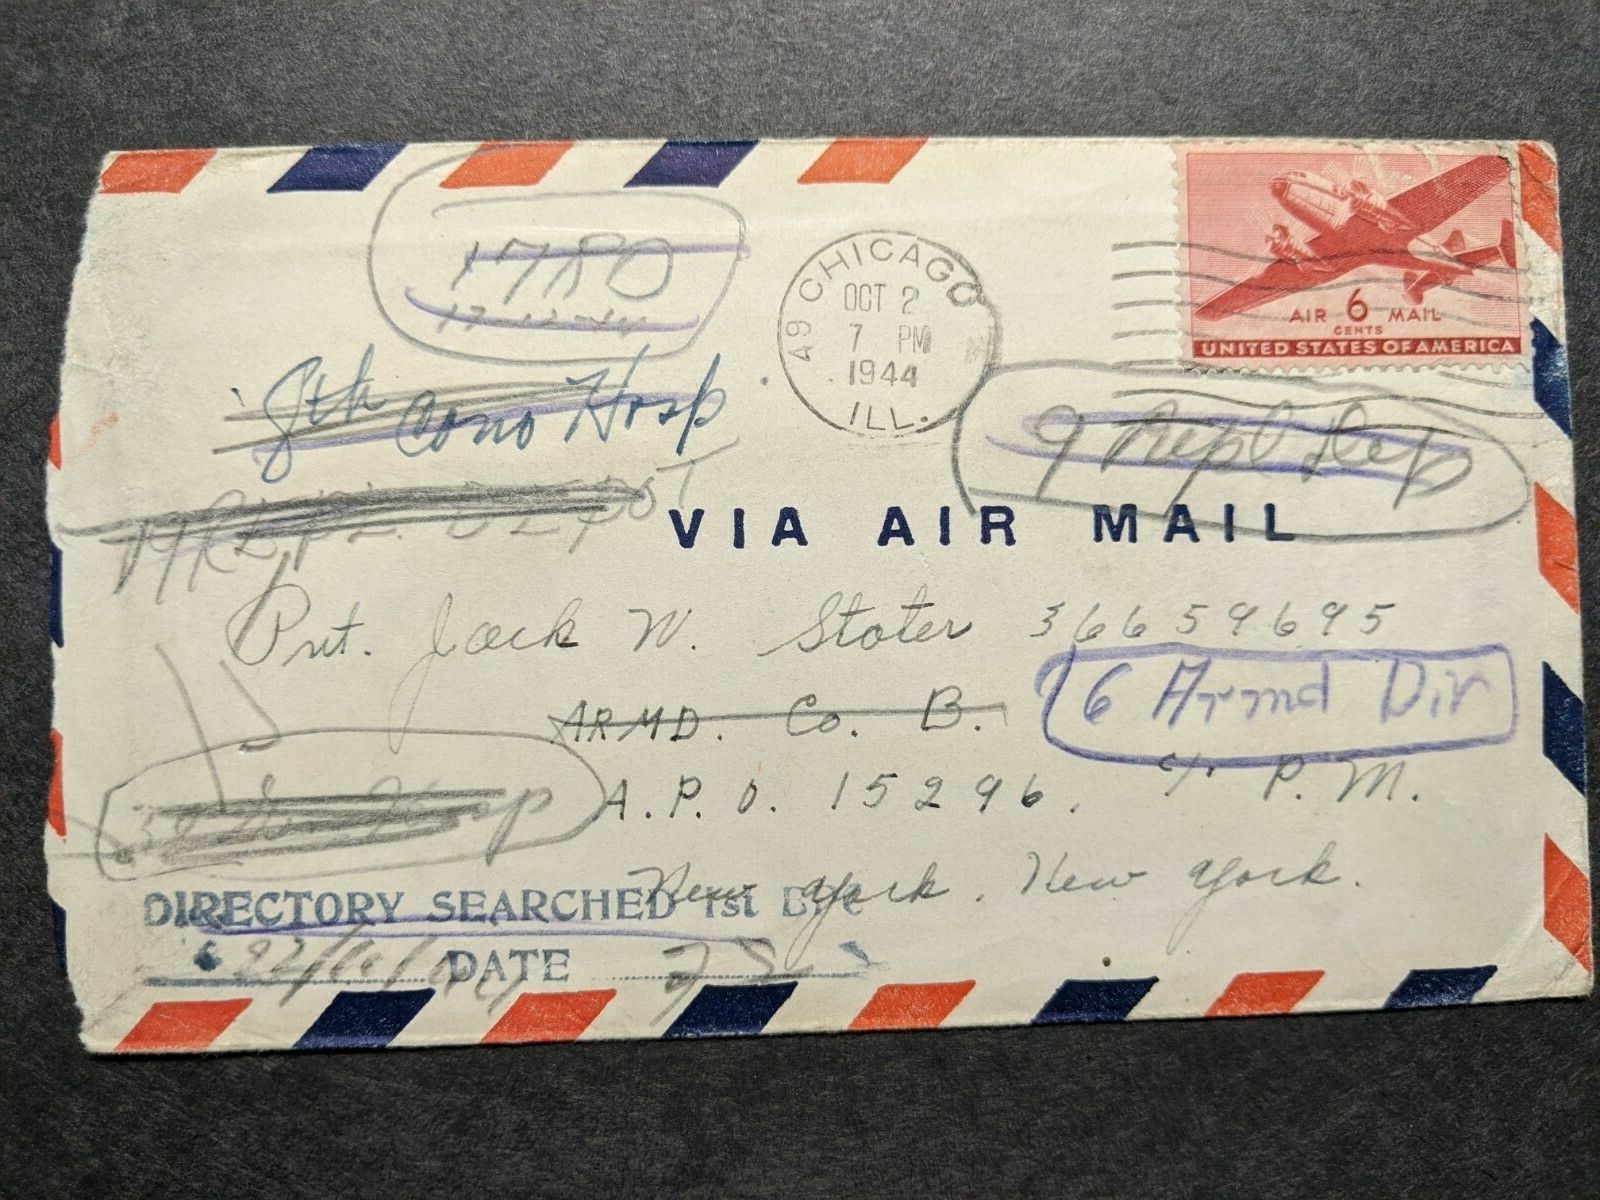 17180
17-12-44
CHICAGO
49
OCT 2
7 PM
1944
ILL.
AIR 6 MAIL
CENTS
UNITED STATES OF AMERICA
8th Conv Hosp
9 Repl Dep
REPL DEPOT
VIA AIR MAIL
Pvt. Jack W. Stoter 36659695
ARMD. Co. B.
6 Armd Div
A.P.O. 15296, c/o P.M.
Hosp
New York, New York.
DIRECTORY SEARCHED 1st
DATE